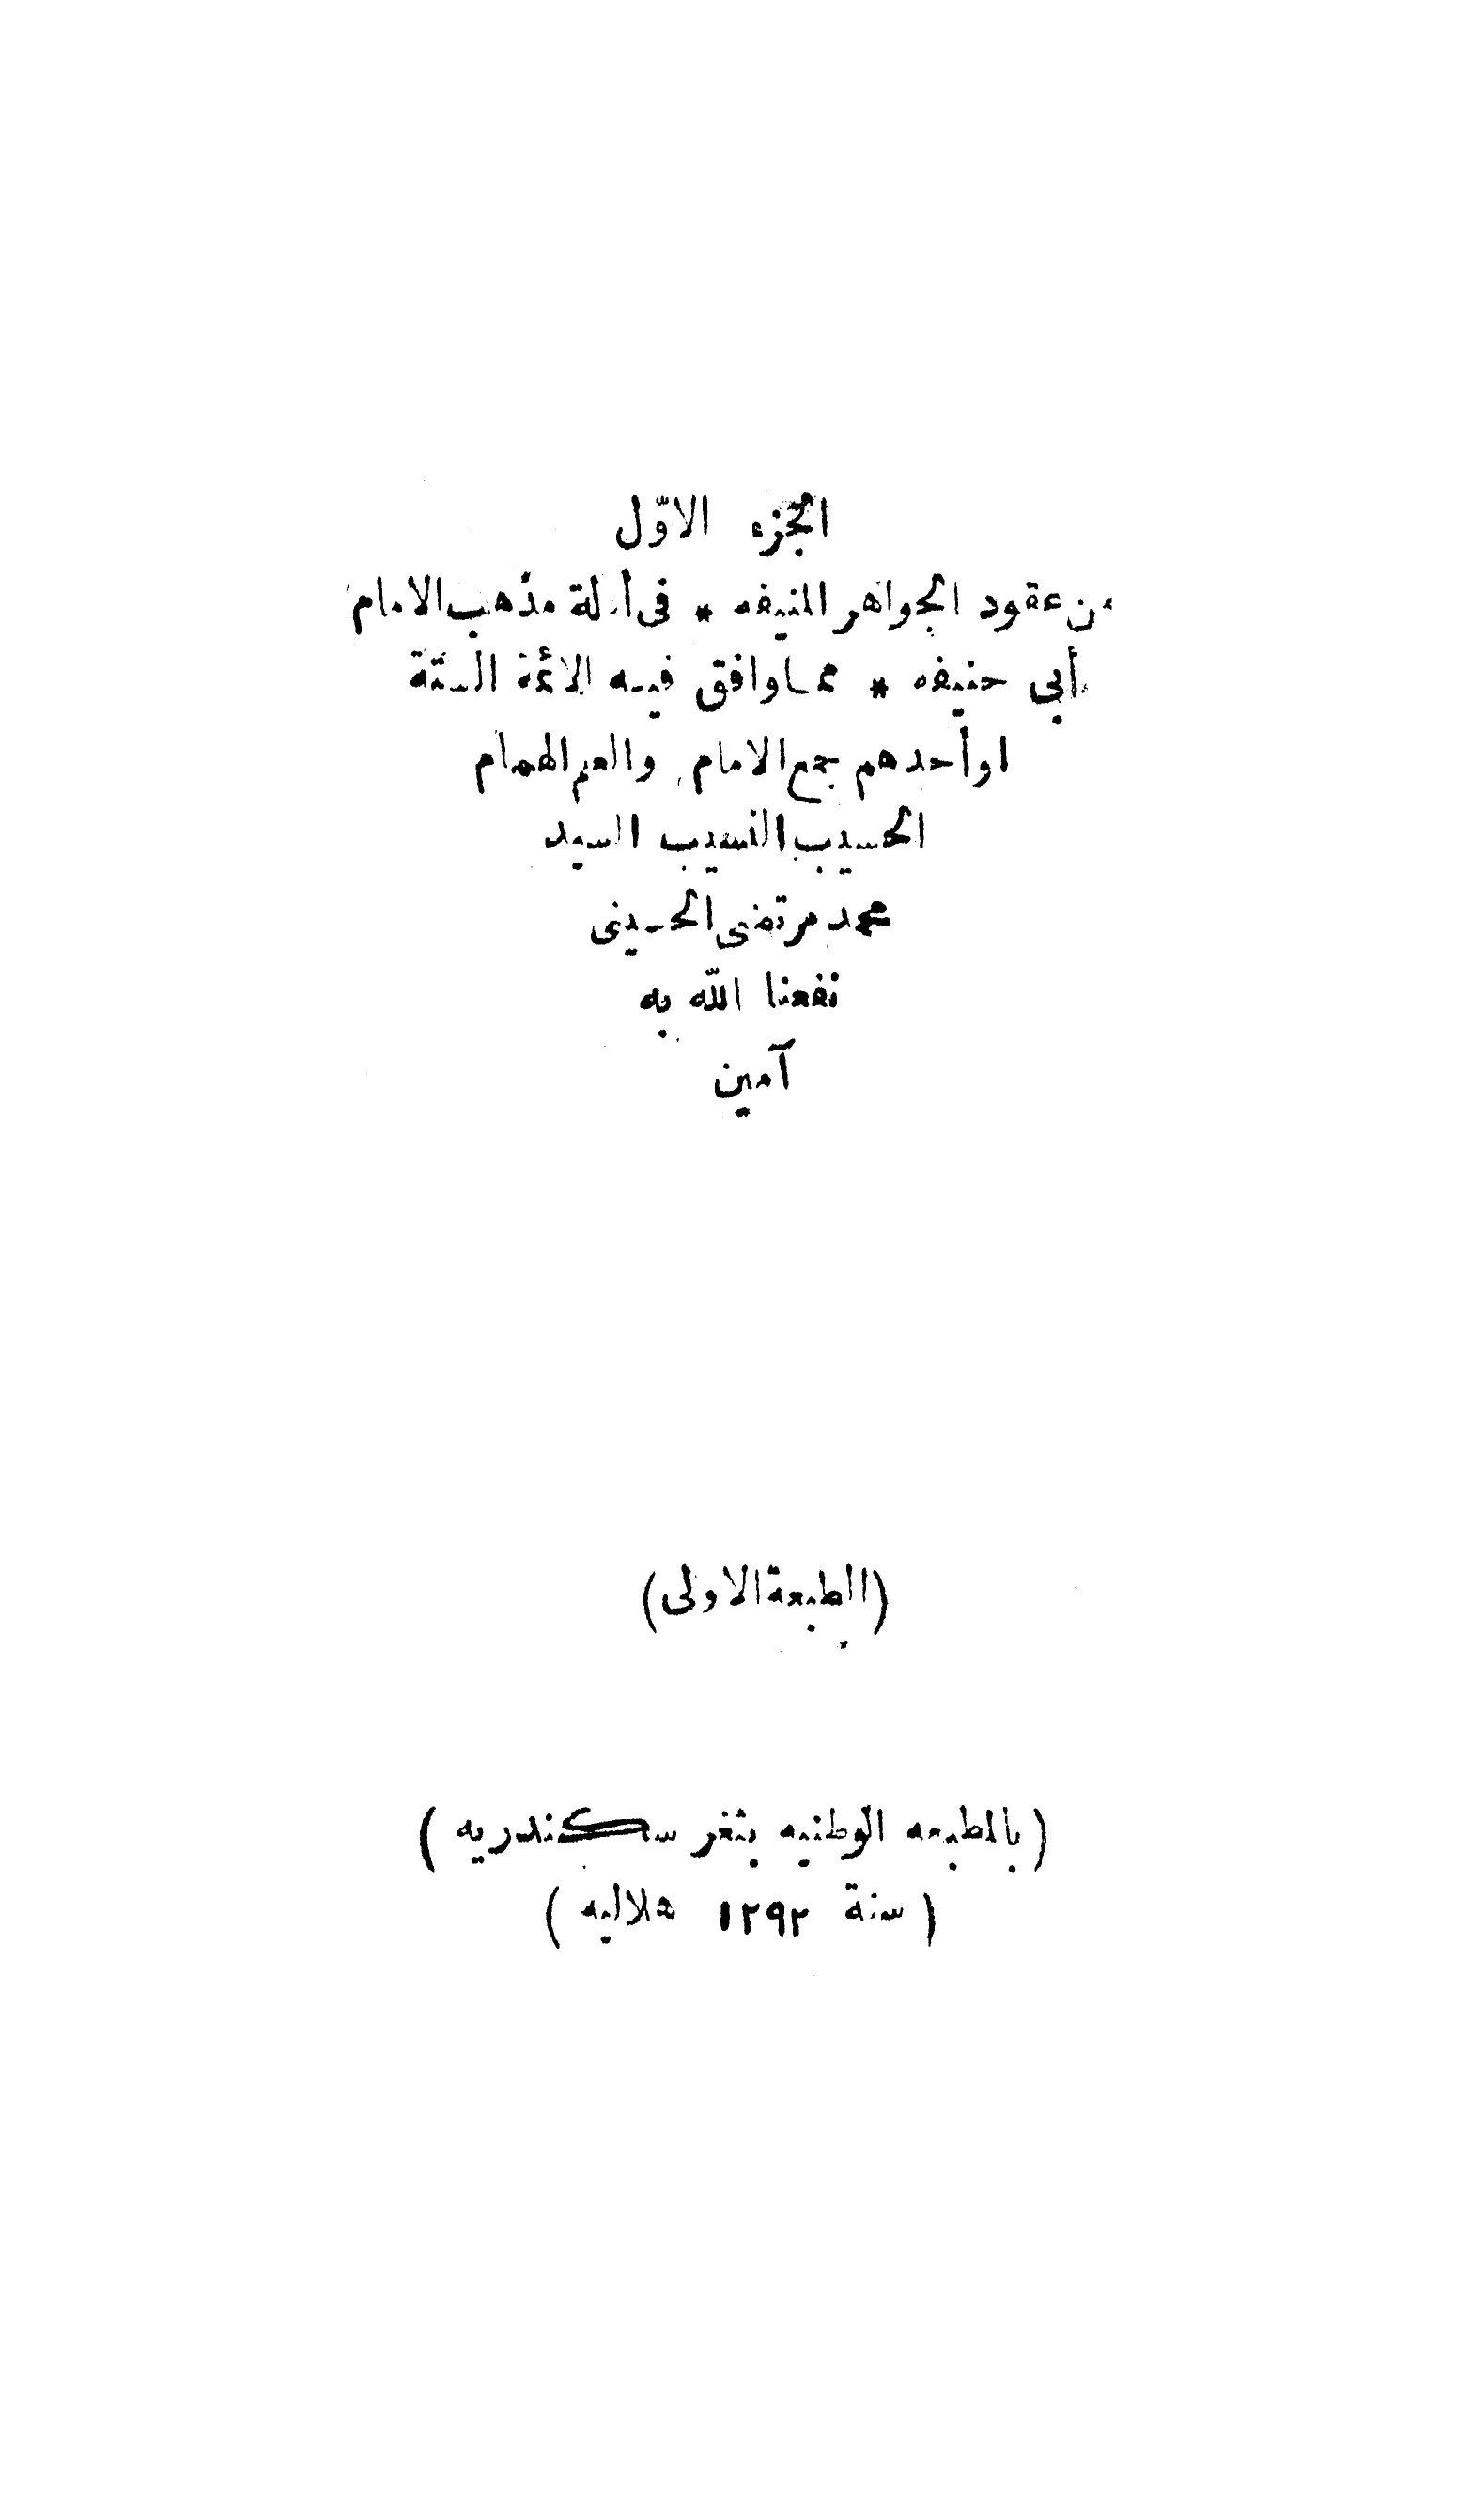 الجزء الاوّل
من عقود الجواهر المنيفه * فى أدلة مذهب الامام
أبي حنيفه * مما وافق فيه الائمة الستة
او أحدهم جمع الامام والعلم الهمام
الحسيب النسيب السيد
محمد مرتضى الحسينى
نفعنا الله به
آمين
(الطبعة الاولى)
(بالمطبعه الوطنيه بثغر سكندريه)
(سنة ١٢٩٢ هلاليه)